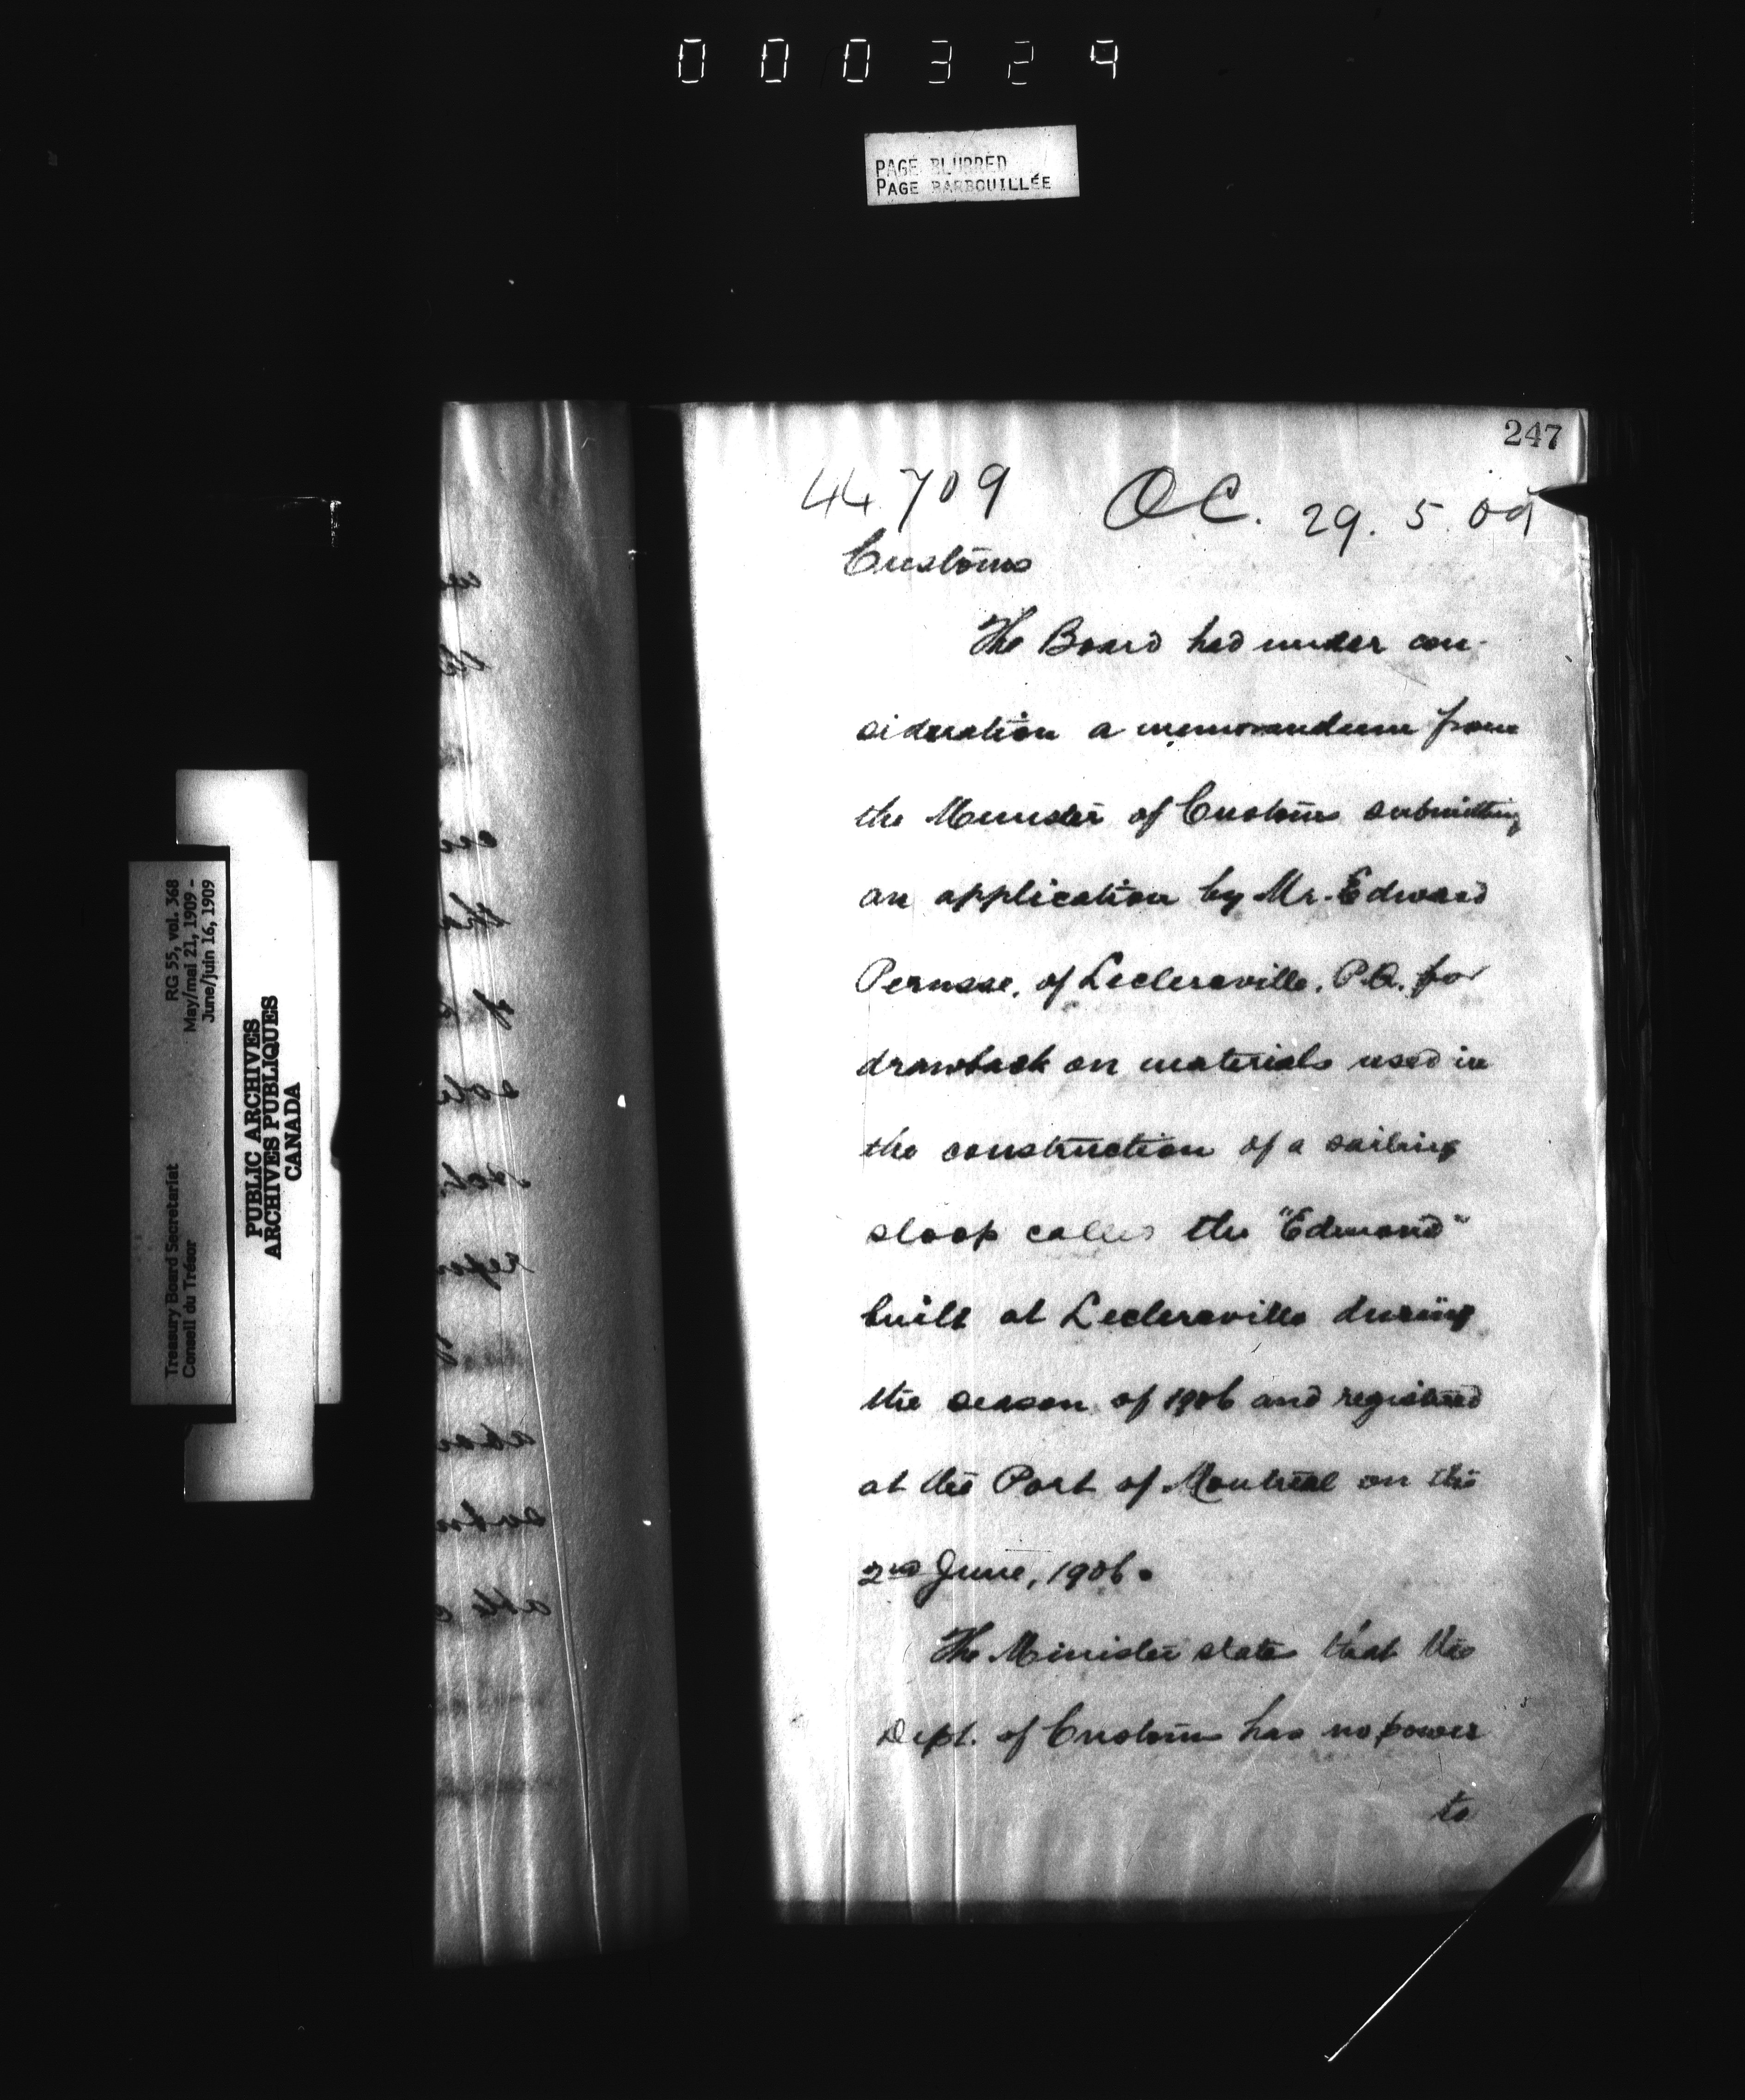 000329
PAGE BLURRED
PAGE BARBOUILLÉE
247
44709 OC. 29.5.09
Customs
The Board had under con-
sideration a memorandum from
the Minister of Customs submitting
an application by Mr. Edward
Perusse, of Leclercville, P.Q. for
drawback on materials used in
the construction of a sailing
sloop called the "Edmond"
built at Leclercville during
the season of 1906 and registered
at the Port of Montreal on the
2nd June, 1906.
The Minister states that the
Dept. of Customs has no power
to
Treasury Board Secretariat RG 55, vol. 368
Conseil du Trésor May/mai 21, 1909 -
June/juin 16, 1909
PUBLIC ARCHIVES
ARCHIVES PUBLIQUES
CANADA